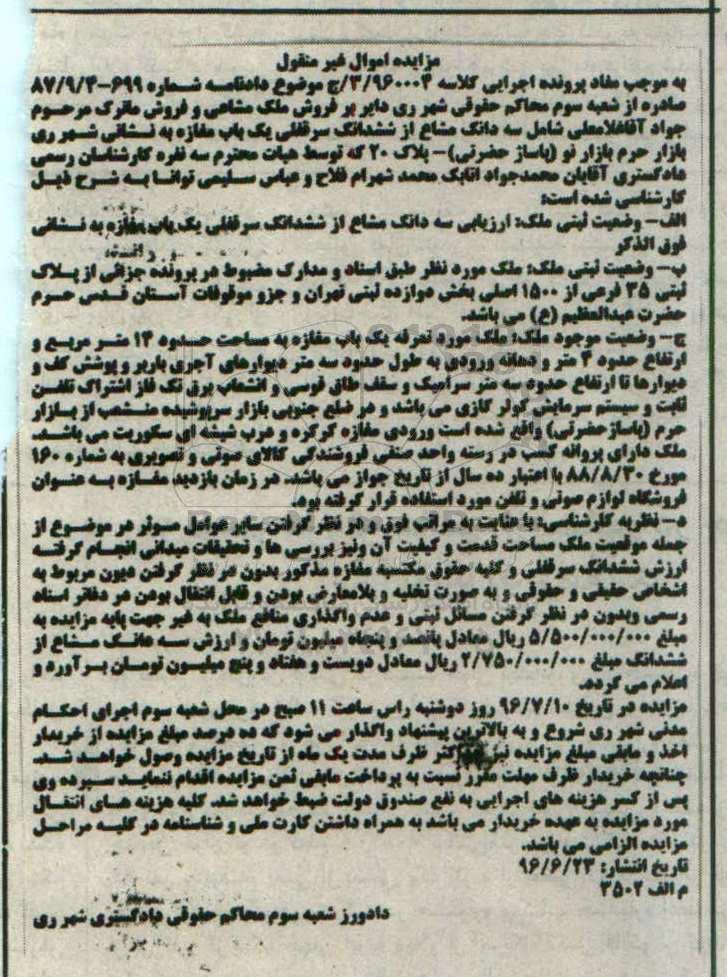 مزایده اموال غیر منقول
به موجب مفاد پرونده اجرایی کلاسه ۳/۹۶۰۰۰۴/ج موضوع دادنامه شماره ۶۹۹-۸۷/۹/۴
صادره از شعبه سوم محاکم حقوقی شهر ری دایر بر فروش ملک مشاعی و فروش ماترک مرحوم
جواد آقاغلامعلی شامل سه دانگ مشاع از ششدانگ سرقفلی یک باب مغازه به نشانی شهر ری
بازار حرم بازار نو (پاساژ حضرتی)- پلاک ۲۰ که توسط هیات محترم سه نفره کارشناسان رسمی
دادگستری آقایان محمدجواد اتابک محمد شهرام فلاح و عباس سلیمی توانا به شرح ذیل
کارشناسی شده است:
الف- وضعیت ثبتی ملک: ارزیابی سه دانگ مشاع از ششدانگ سرقفلی یک باب مغازه به نشانی
فوق الذکر
ب- وضعیت ثبتی ملک: ملک مورد نظر طبق اسناد و مدارک مضبوط در پرونده جزائی از پلاک
ثبتی ۳۵ فرعی از ۱۵۰۰ اصلی بخش دوازده ثبتی تهران و جزو موقوفات آستان قدس حرم
حضرت عبدالعظیم (ع) می باشد.
ج- وضعیت موجود ملک: ملک مورد تعرفه یک باب مغازه به مساحت حدود ۱۴ متر مربع و
ارتفاع حدود ۴ متر و دهانه ورودی به طول حدود سه متر دیوارهای آجری باربر و پوشش کف و
دیوارها تا ارتفاع حدود سه متر سرامیک و سقف طاق قوسی و انشعاب برق تک فاز اشتراک تلفن
ثابت و سیستم سرمایش کولر گازی می باشد و در ضلع جنوبی بازار سرپوشیده منشعب از بازار
حرم (پاساژحضرتی) واقع شده است ورودی مغازه کرکره و درب شیشه ای سکوریت می باشد.
ملک دارای پروانه کسب در رسته واحد صنفی فروشندگی کالای صوتی و تصویری به شماره ۱۶۰
مورخ ۸۸/۸/۳۰ با اعتبار ده سال از تاریخ جواز می باشد. در زمان بازدید مغازه به عنوان
فروشگاه لوازم صوتی و تلفن مورد استفاده قرار گرفته بود.
د- نظریه کارشناسی: با عنایت به مراتب فوق و در نظر گرفتن سایر عوامل موثر در موضوع از
جمله موقعیت ملک مساحت قدمت و کیفیت آن ونیز بررسی ها و تحقیقات میدانی انجام گرفته
ارزش ششدانگ سرقفلی و کلیه حقوق مکتسبه مغازه مذکور بدون در نظر گرفتن دیون مربوط به
اشخاص حقیقی و حقوقی و به صورت تخلیه و بلامعارض بودن و قابل انتقال بودن در دفاتر اسناد
رسمی وبدون در نظر گرفتن مسائل ثبتی و عدم واگذاری منافع ملک به غیر جهت پایه مزایده به
مبلغ ۵/۵۰۰/۰۰۰/۰۰۰ ریال معادل پانصد و پنجاه میلیون تومان و ارزش سه دانگ مشاع از
ششدانگ مبلغ ۲/۷۵۰/۰۰۰/۰۰۰ ریال معادل دویست و هفتاد و پنج میلیون تومان برآورد و
اعلام می گردد.
مزایده در تاریخ ۹۶/۷/۱۰ روز دوشنبه راس ساعت ۱۱ صبح در محل شعبه سوم اجرای احکام
مدنی شهر ری شروع و به بالاترین پیشنهاد واگذار می شود که ده درصد مبلغ مزایده از خریدار
اخذ و مابقی مبلغ مزایده ظرف مدت یک ماه از تاریخ مزایده وصول خواهد شد.
چنانچه خریدار ظرف مهلت مقرر نسبت به پرداخت مابقی ثمن مزایده اقدام ننماید سپرده وی
پس از کسر هزینه های اجرایی به نفع صندوق دولت ضبط خواهد شد. کلیه هزینه های انتقال
مورد مزایده به عهده خریدار می باشد به همراه داشتن کارت ملی و شناسنامه در کلیه مراحل
مزایده الزامی می باشد.
تاریخ انتشار: ۹۶/۶/۲۳
م الف ۳۵۰۲
دادورز شعبه سوم محاکم حقوقی دادگستری شهر ری